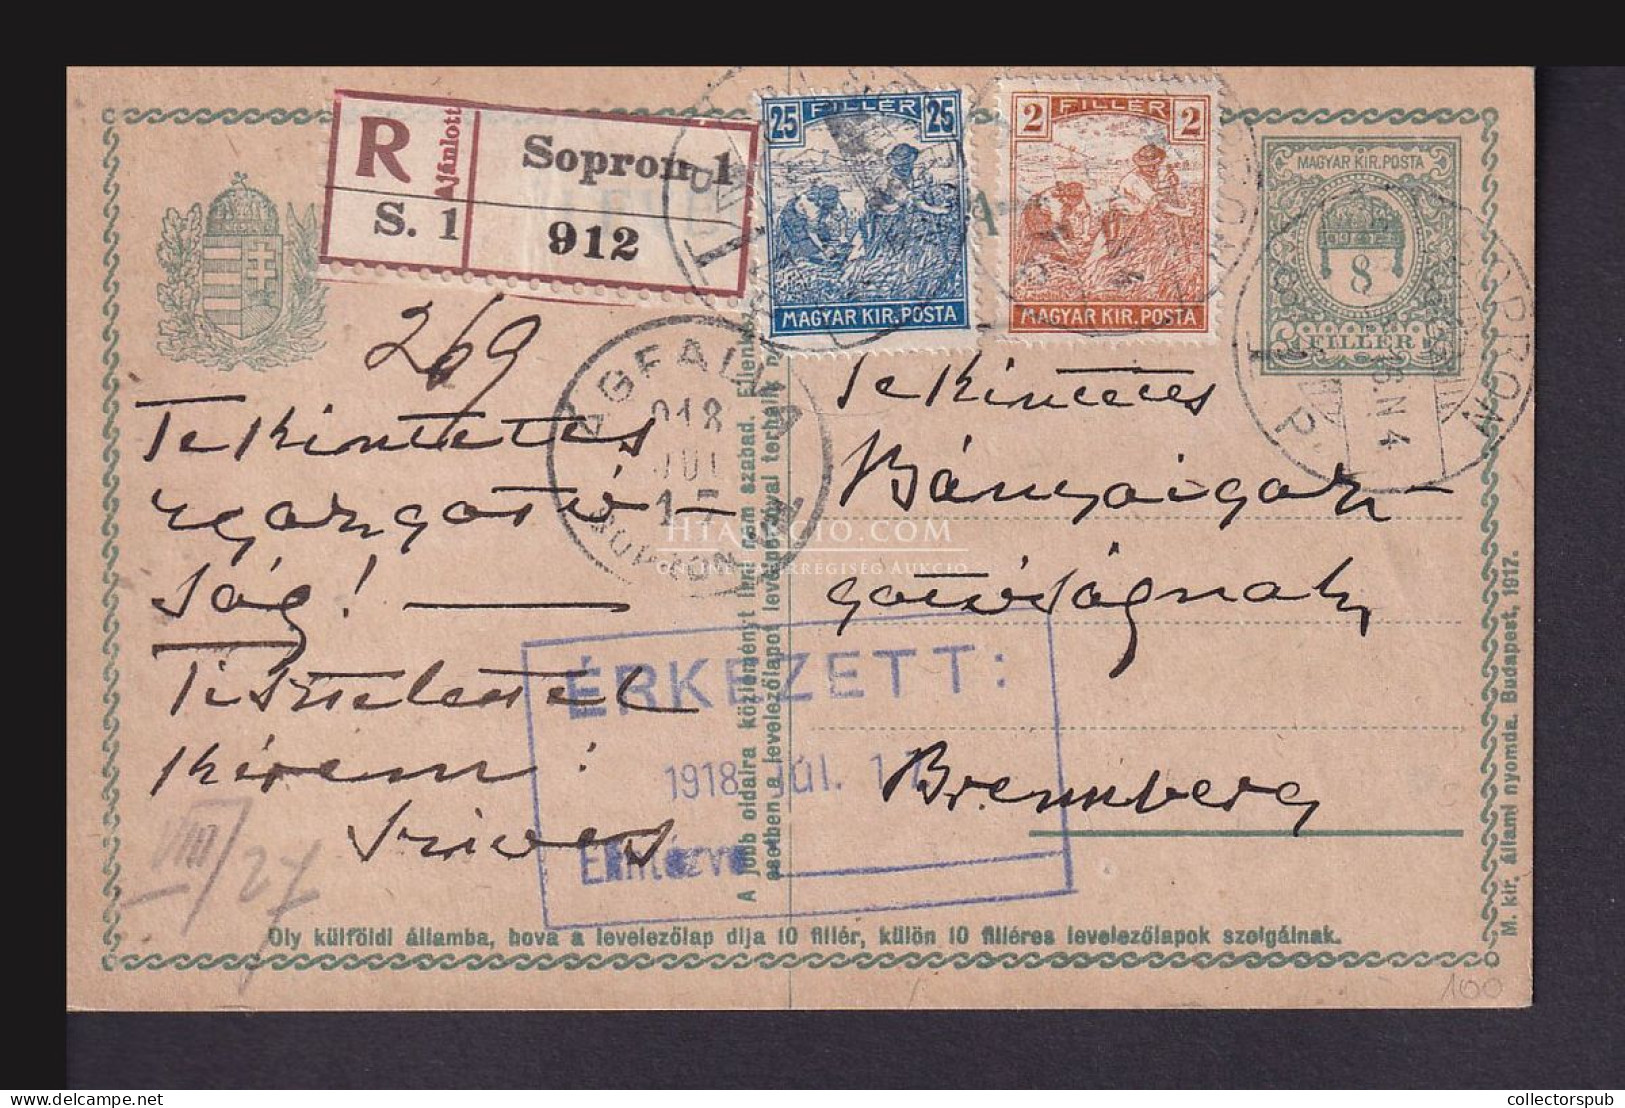 R
Ajánlott
Sopron 1
S. 1
912
25 FILLÉR 25
MAGYAR KIR. POSTA
2 FILLÉR 2
MAGYAR KIR. POSTA
MAGYAR KIR. POSTA
8
FILLÉR
SOPRON
269
ÁGFALVA
918 JUL
SOPRON
Tekintetes
igazgató-
ság!
Tisztelettel
kérem
szives
VIII/27
Tekintetes
Bányaigaz-
gatóságnak
Brennberg
ÉRKEZETT:
1918 JÚL. 17
Elintézve
HTAUKCIO.COM
ONLINE PAPÍRRÉGISÉG AUKCIÓ
A jobb oldalra közleményt irni nem szabad. Ellenk
esetben a levelezőlapot levélportóval terhelik m
Oly külföldi államba, hova a levelezőlap dija 10 fillér, külön 10 filléres levelezőlapok szolgálnak.
M. kir. állami nyomda. Budapest, 1917.
100
collectorspub